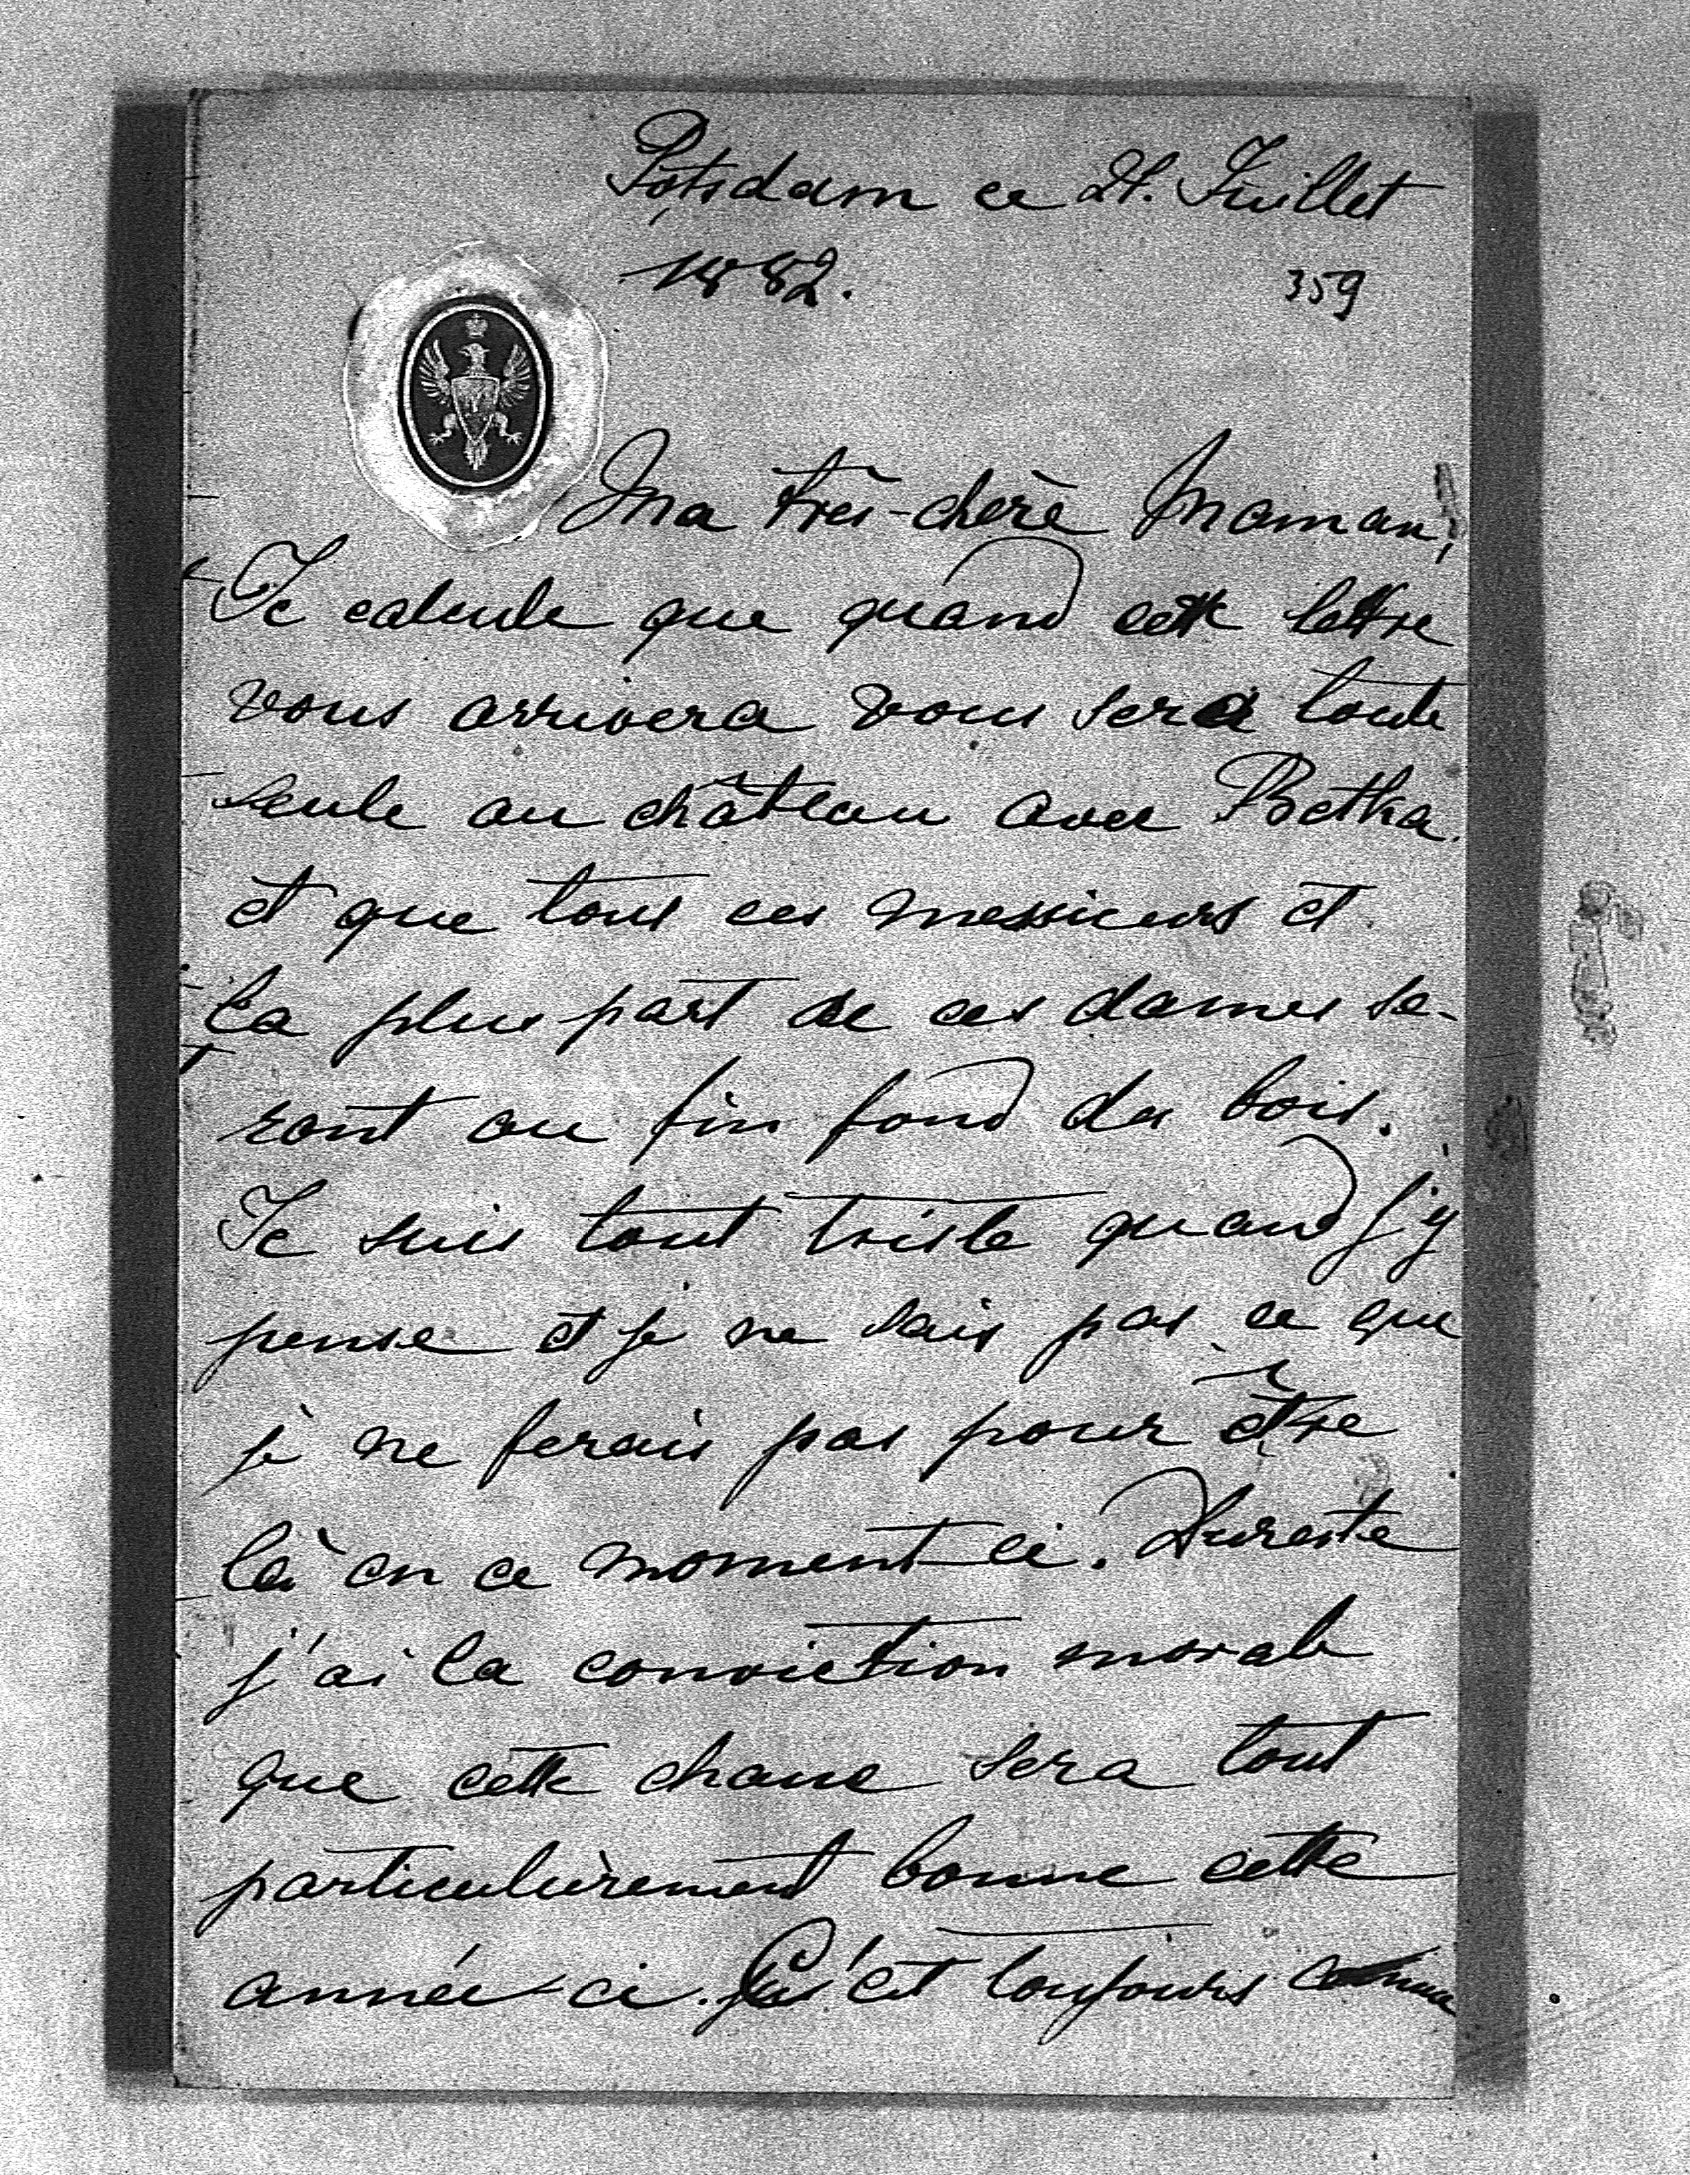 Potsdam ce 21. Juillet
1882.
359
Ma très-chère Maman,
Je calcule que quand cette lettre
vous arrivera vous sera toute
seule au château avec Betka
et que tous ces messieurs et
la plus part de ces dames se-
ront au fin fond des bois.
Je suis tout triste quand j'y
pense et je ne sais pas ce que
je ne ferais pas pour être
là en ce moment-ci. Dureste
j'ai la conviction morale
que cette chasse sera tout
particulièrement bonne cette
année-ci. C'est toujours comme